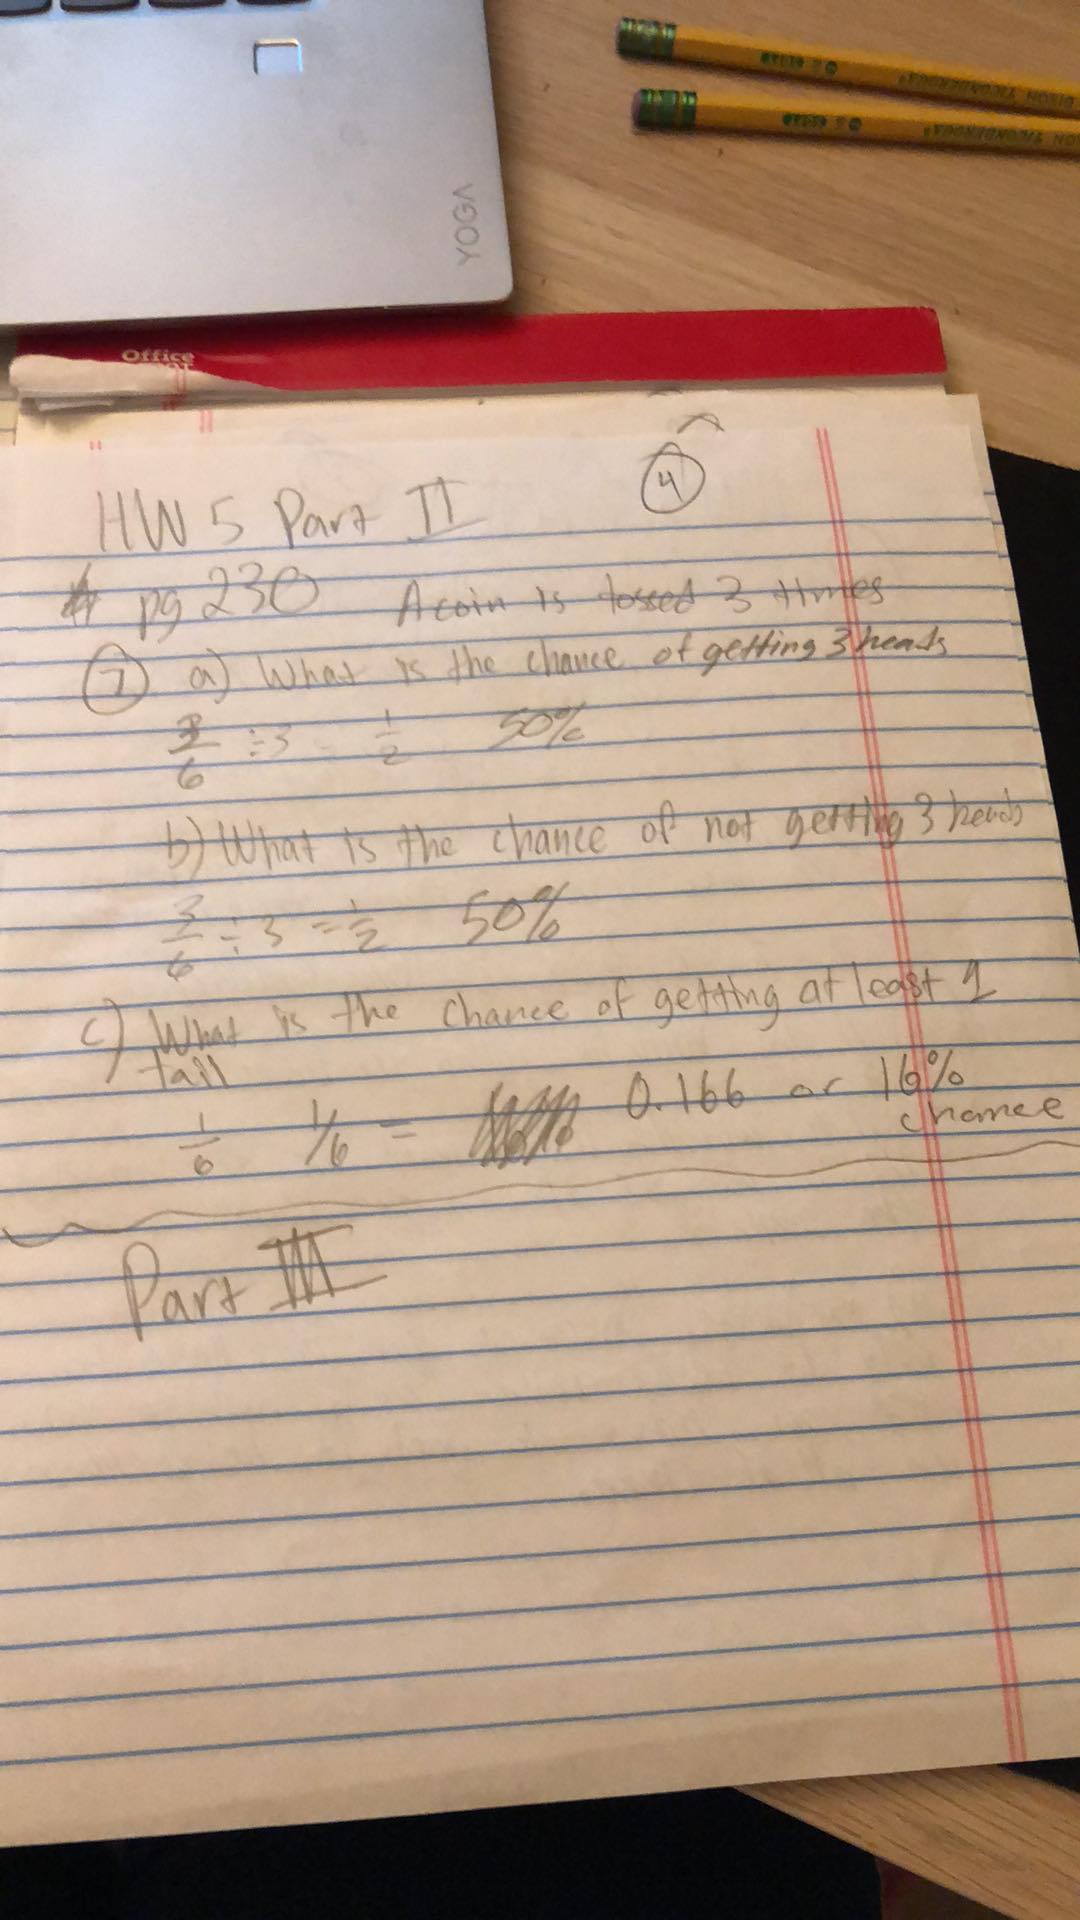 YOGA
DIXON TICONDEROGA®
TICONDEROGA®
Office
4
HW 5 Part II
pg 230 A coin is tossed 3 times
7 a) What is the chance of getting 3 heads
3/6 ÷ 3 = 1/2 50%
b) What is the chance of not getting 3 heads
3/6 ÷ 3 = 1/2 50%
c) What is the chance of getting at least 1
tail
1/6 1/6 = 0.166 or 16%
chance
Part III